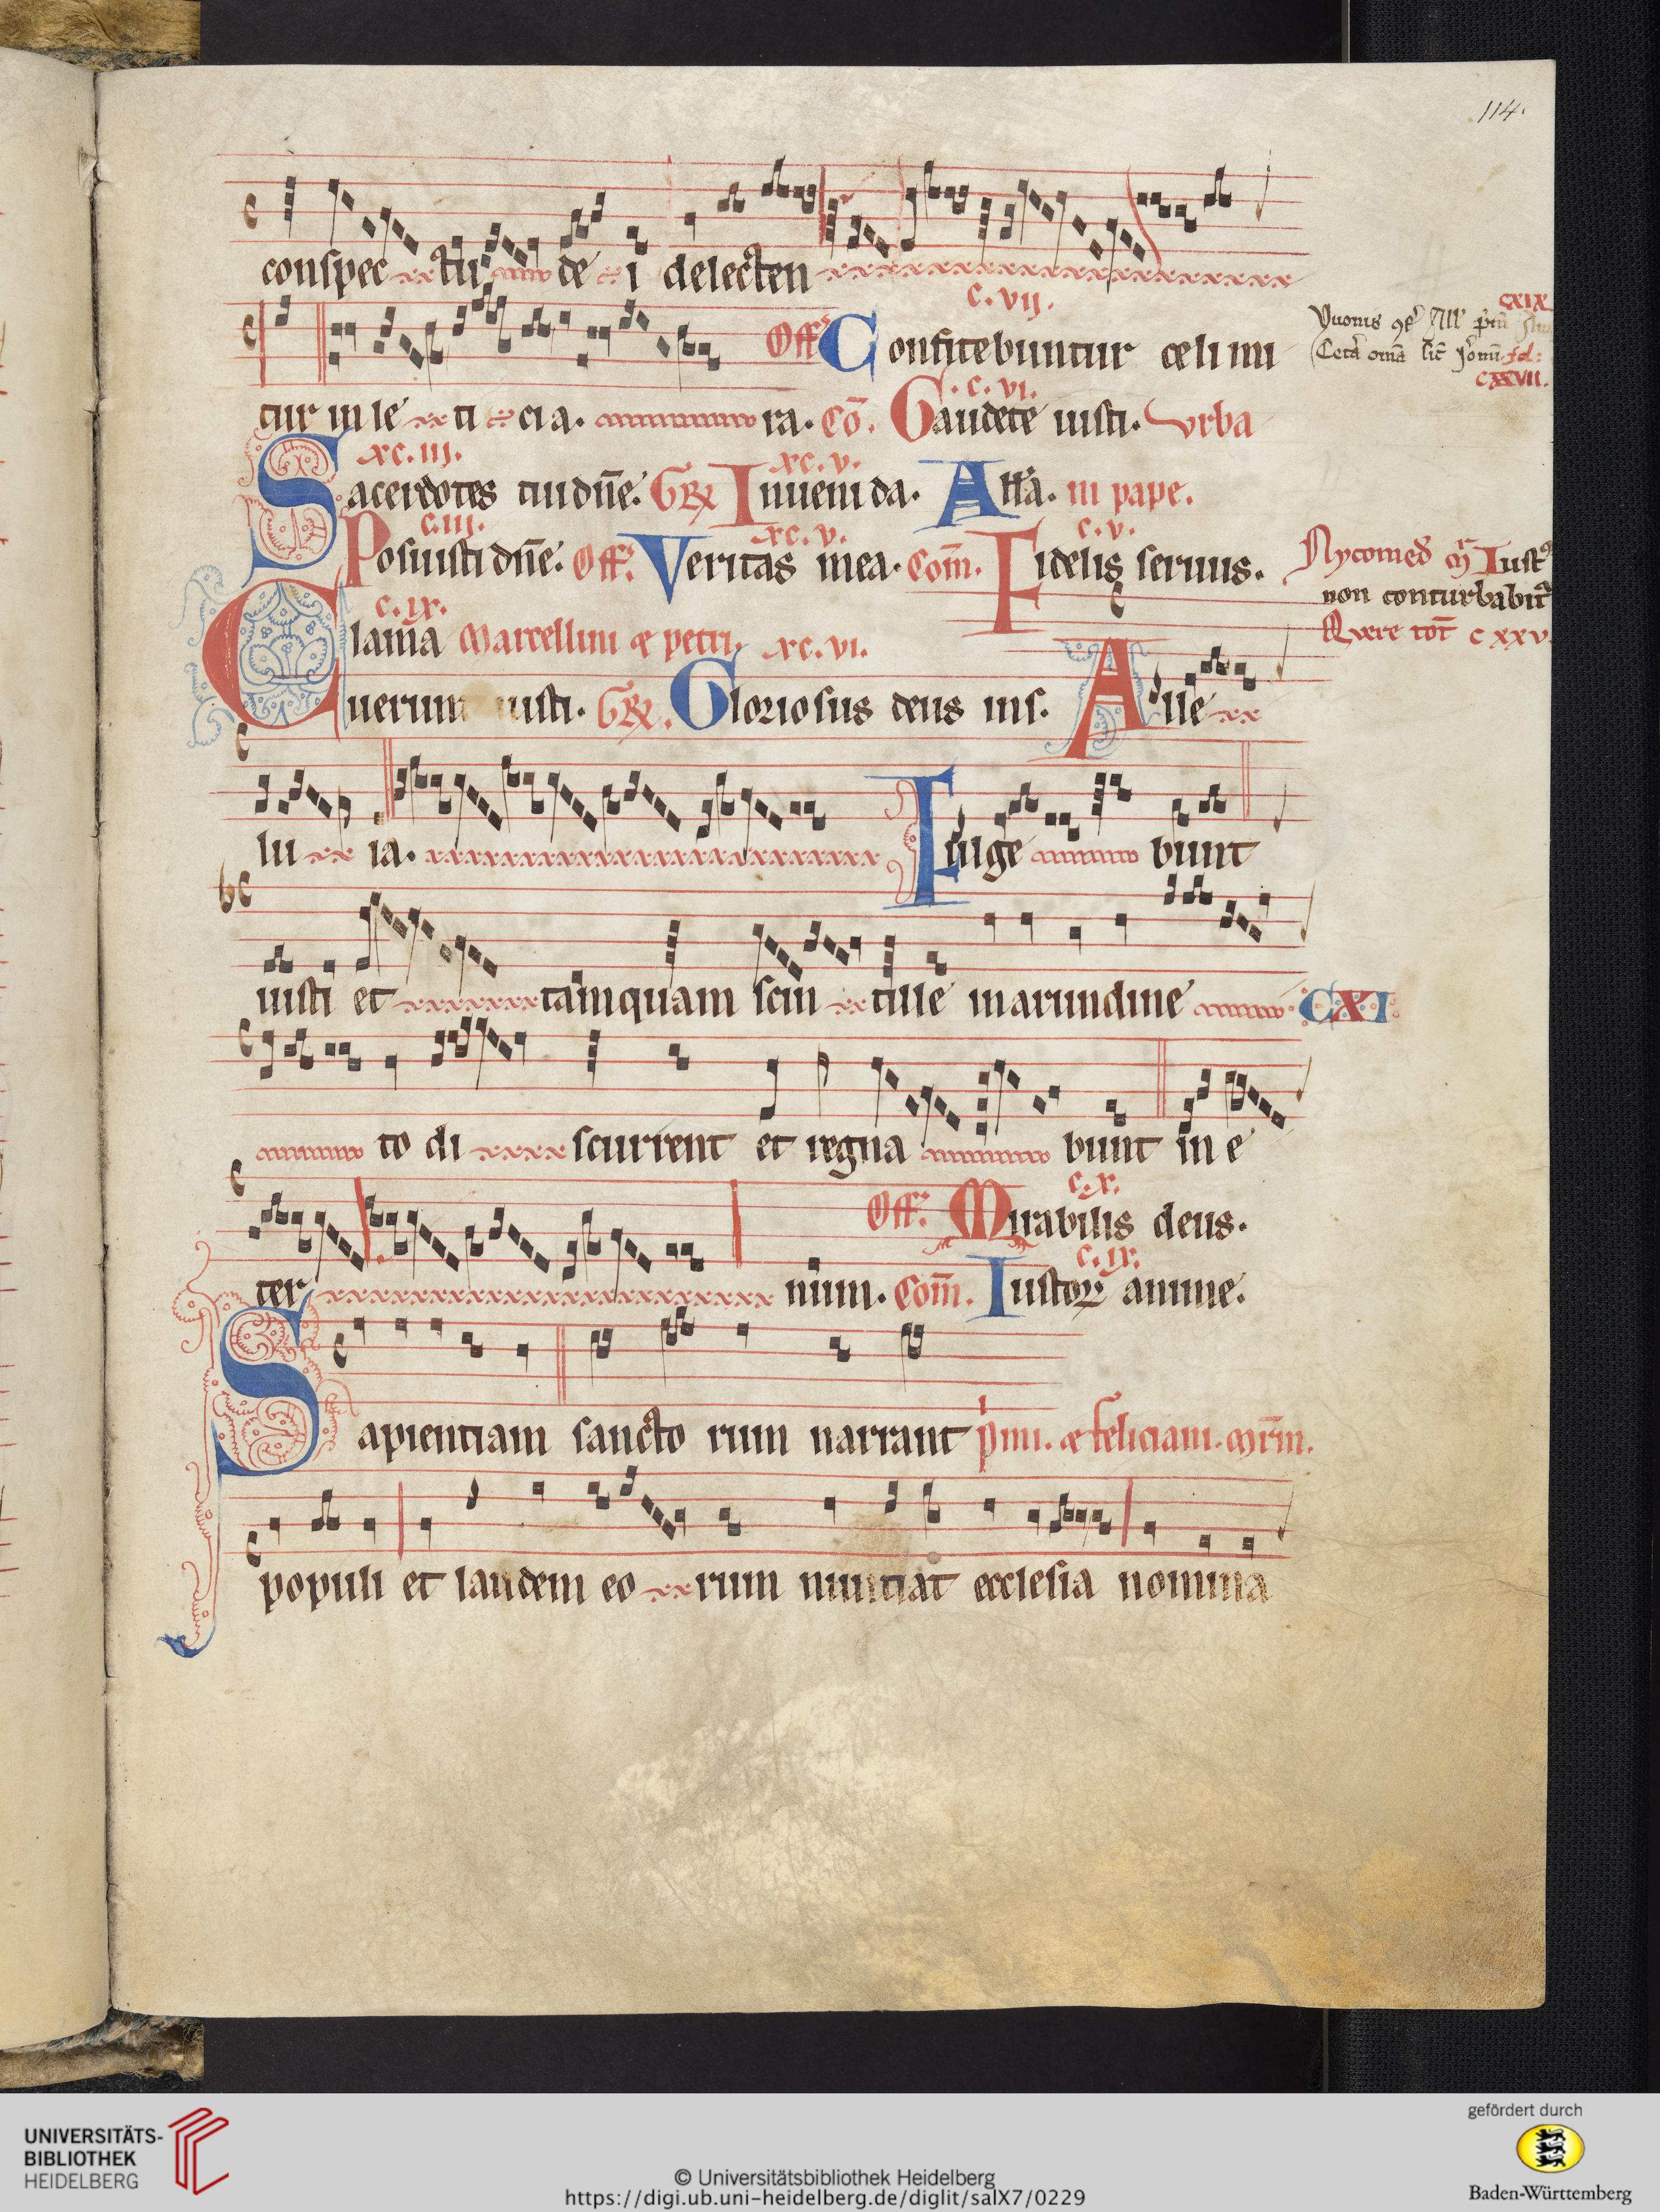 114.
conspec ctu de i delecten
c. vij.
Off. Confitebuntur celi mi
tur in le ti cia. ra. Cō. Gaudete iusti. vrba
c. vi.
xc. iii. xc. v.
Sacerdotes tui dn̄e. GR Inueni da. All'a. ni pape.
c. iii. xc. v. c. v.
Posuisti dn̄e. Off. Veritas mea. Com̄. Fidelis seruus.
c. ix.
Clama Marcellini et petri. xc. vi.
uerunt iusti. GR. Gloriosus deus ins. Alle
lu ia. Fulge bunt
iusti et tamquam scin tille in arundine CXI
to di scurrent et regna bunt in e
c. x.
Off. Mirabilis deus.
c. ix.
ter num. Com̄. Iustoꝝ anime.
Sapientiam sancto rum narrant p̄mi. et feliciani. mr̄m.
populi et laudem eo rum nunciat ecclesia nomina
CXIX
CXXVII.
Nycomed mr Iustꝰ
non conturbabit᷑
Qvere tot̄ c xxv.
UNIVERSITÄTS-
BIBLIOTHEK
HEIDELBERG
© Universitätsbibliothek Heidelberg
https://digi.ub.uni-heidelberg.de/diglit/salX7/0229
gefördert durch
Baden-Württemberg